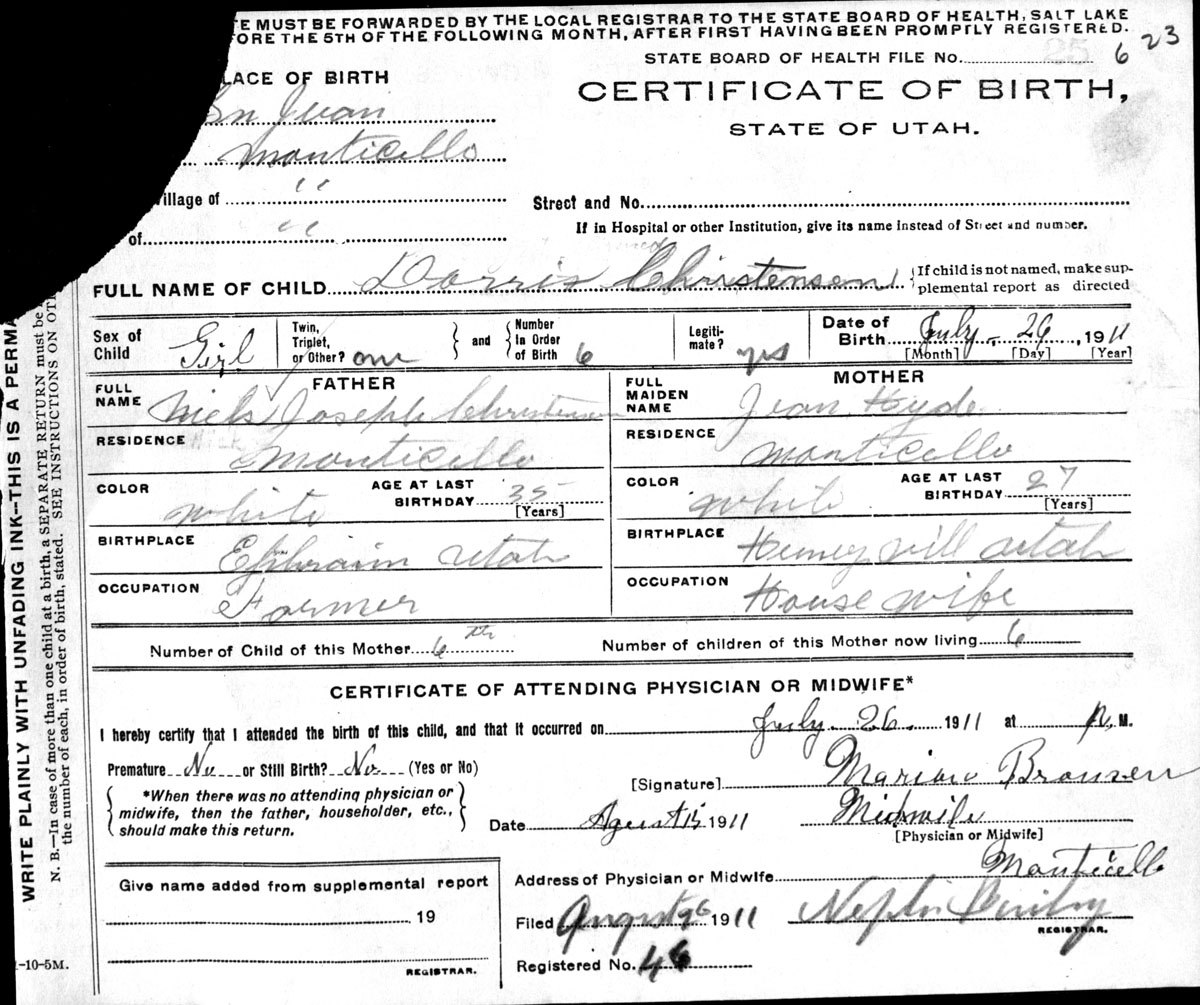 E MUST BE FORWARDED BY THE LOCAL REGISTRAR TO THE STATE BOARD OF HEALTH, SALT LAKE
ORE THE 5TH OF THE FOLLOWING MONTH, AFTER FIRST HAVING BEEN PROMPTLY REGISTERED.
STATE BOARD OF HEALTH FILE No. 25 6 23
LACE OF BIRTH
CERTIFICATE OF BIRTH,
STATE OF UTAH.
an Juan
Monticello
illage of "
Street and No.
of "
If in Hospital or other Institution, give its name instead of Street and number.
FULL NAME OF CHILD Dorris Christensen
If child is not named, make sup-
plemental report as directed
Sex of Child Girl
Twin, Triplet, or Other? one
and
Number In Order of Birth 6
Legiti-mate? yes
Date of Birth July 26, 1911
[Month] [Day] [Year]
FATHER
FULL NAME Niels Joseph Christensen
RESIDENCE Monticello
COLOR White
AGE AT LAST BIRTHDAY 35
[Years]
BIRTHPLACE Ephraim Utah
OCCUPATION Farmer
MOTHER
FULL MAIDEN NAME Jean Hyde
RESIDENCE Monticello
COLOR White
AGE AT LAST BIRTHDAY 27
[Years]
BIRTHPLACE Utah
OCCUPATION House wife
Number of Child of this Mother 6th
Number of children of this Mother now living 6
CERTIFICATE OF ATTENDING PHYSICIAN OR MIDWIFE*
I hereby certify that I attended the birth of this child, and that it occurred on July 26. 1911 at P. M.
Premature No or Still Birth? No (Yes or No)
*When there was no attending physician or
midwife, then the father, householder, etc.,
should make this return.
[Signature] Marian Bronson
Date Agust 15 1911
Midwife
[Physician or Midwife]
Give name added from supplemental report
19
REGISTRAR.
Address of Physician or Midwife Monticello
Filed August 26 1911
Nephi
REGISTRAR.
Registered No. 46
-10-5M.
WRITE PLAINLY WITH UNFADING INK—THIS IS A PERMA
N. B.—In case of more than one child at a birth, a SEPARATE RETURN must be
the number of each, in order of birth, stated. SEE INSTRUCTIONS ON OT